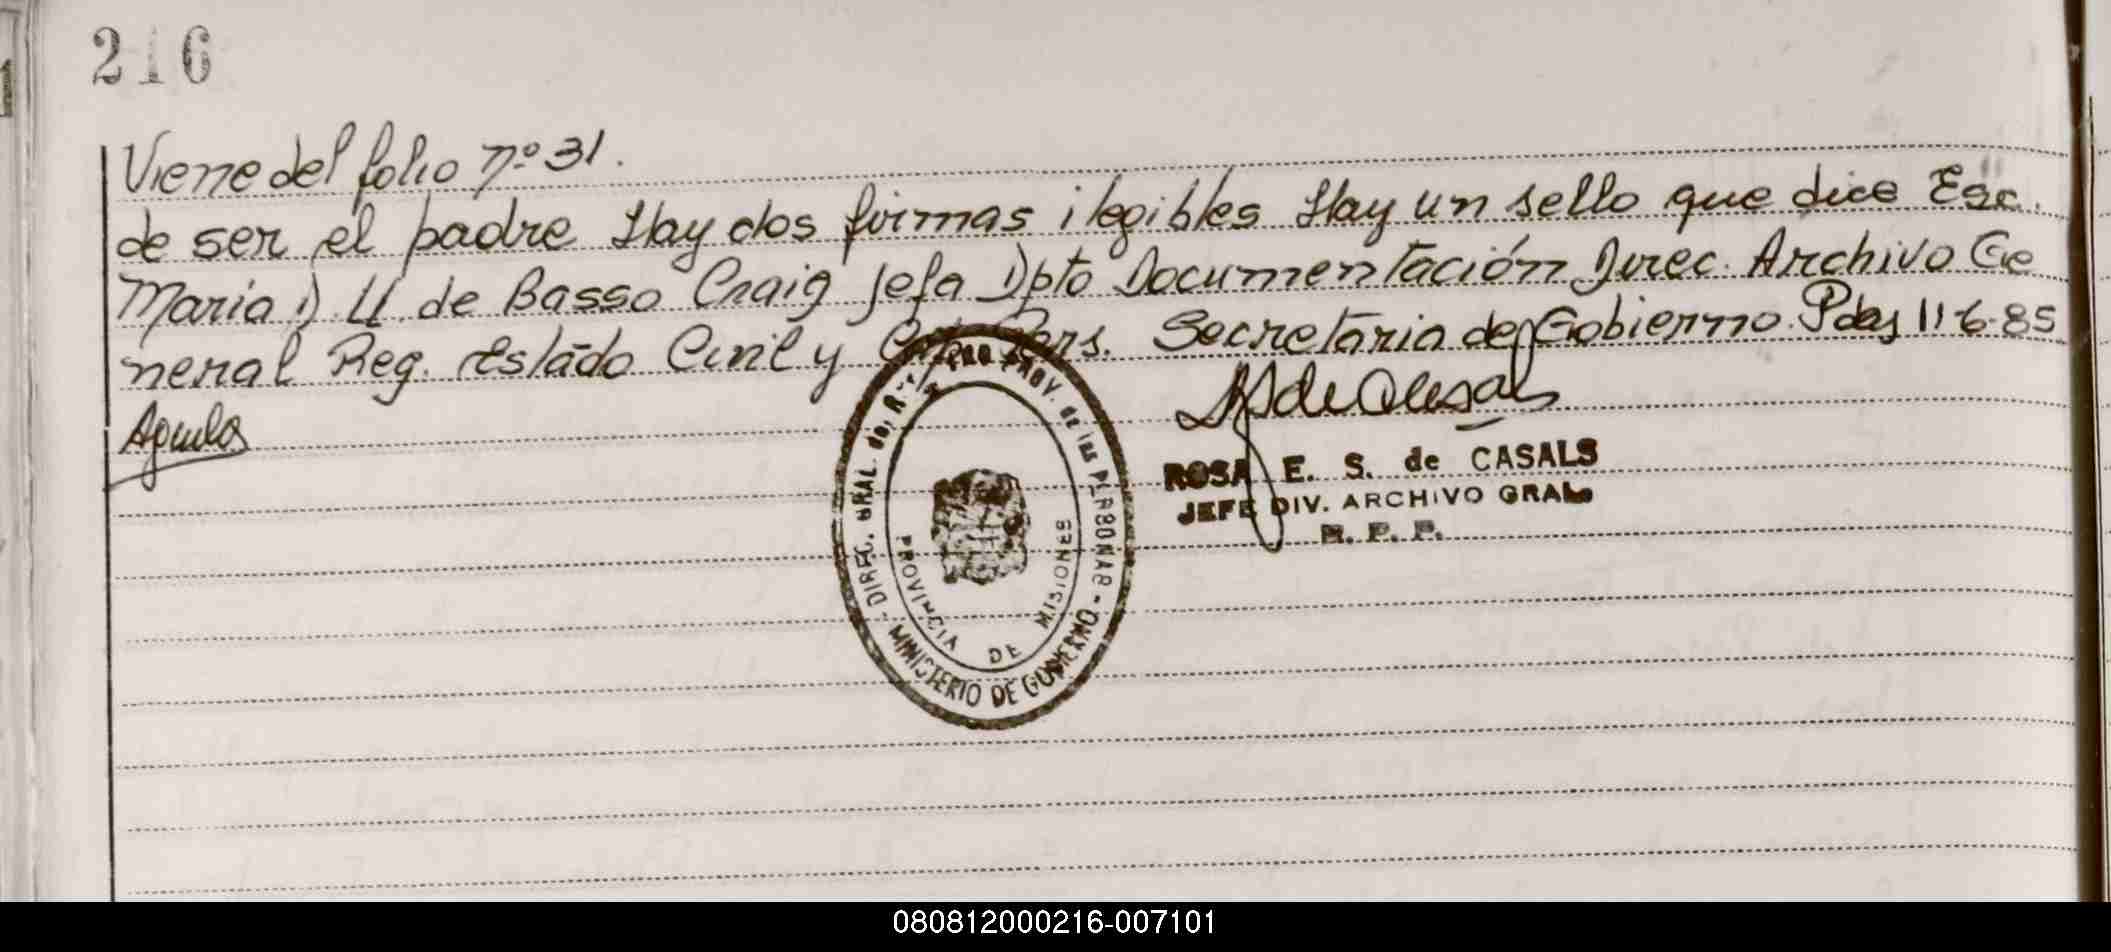 216
Viene del folio nº 31.
de ser el padre Hay dos firmas ilegibles Hay un sello que dice Esc.
Maria D. U. de Basso Craig Jefa Dpto Documentación Direc. Archivo Ge
neral Reg. Estado Civil y Cap. Pers. Secretaria de Gobierno. Pdas 11-6-85
ROSA E. S. de CASALS
JEFE DIV. ARCHIVO GRAL.
R. P. P.
DIREC. GRAL. del R. PROV. de las PERSONAS -
MINISTERIO DE GOBIERNO
PROVINCIA DE MISIONES
080812000216-007101